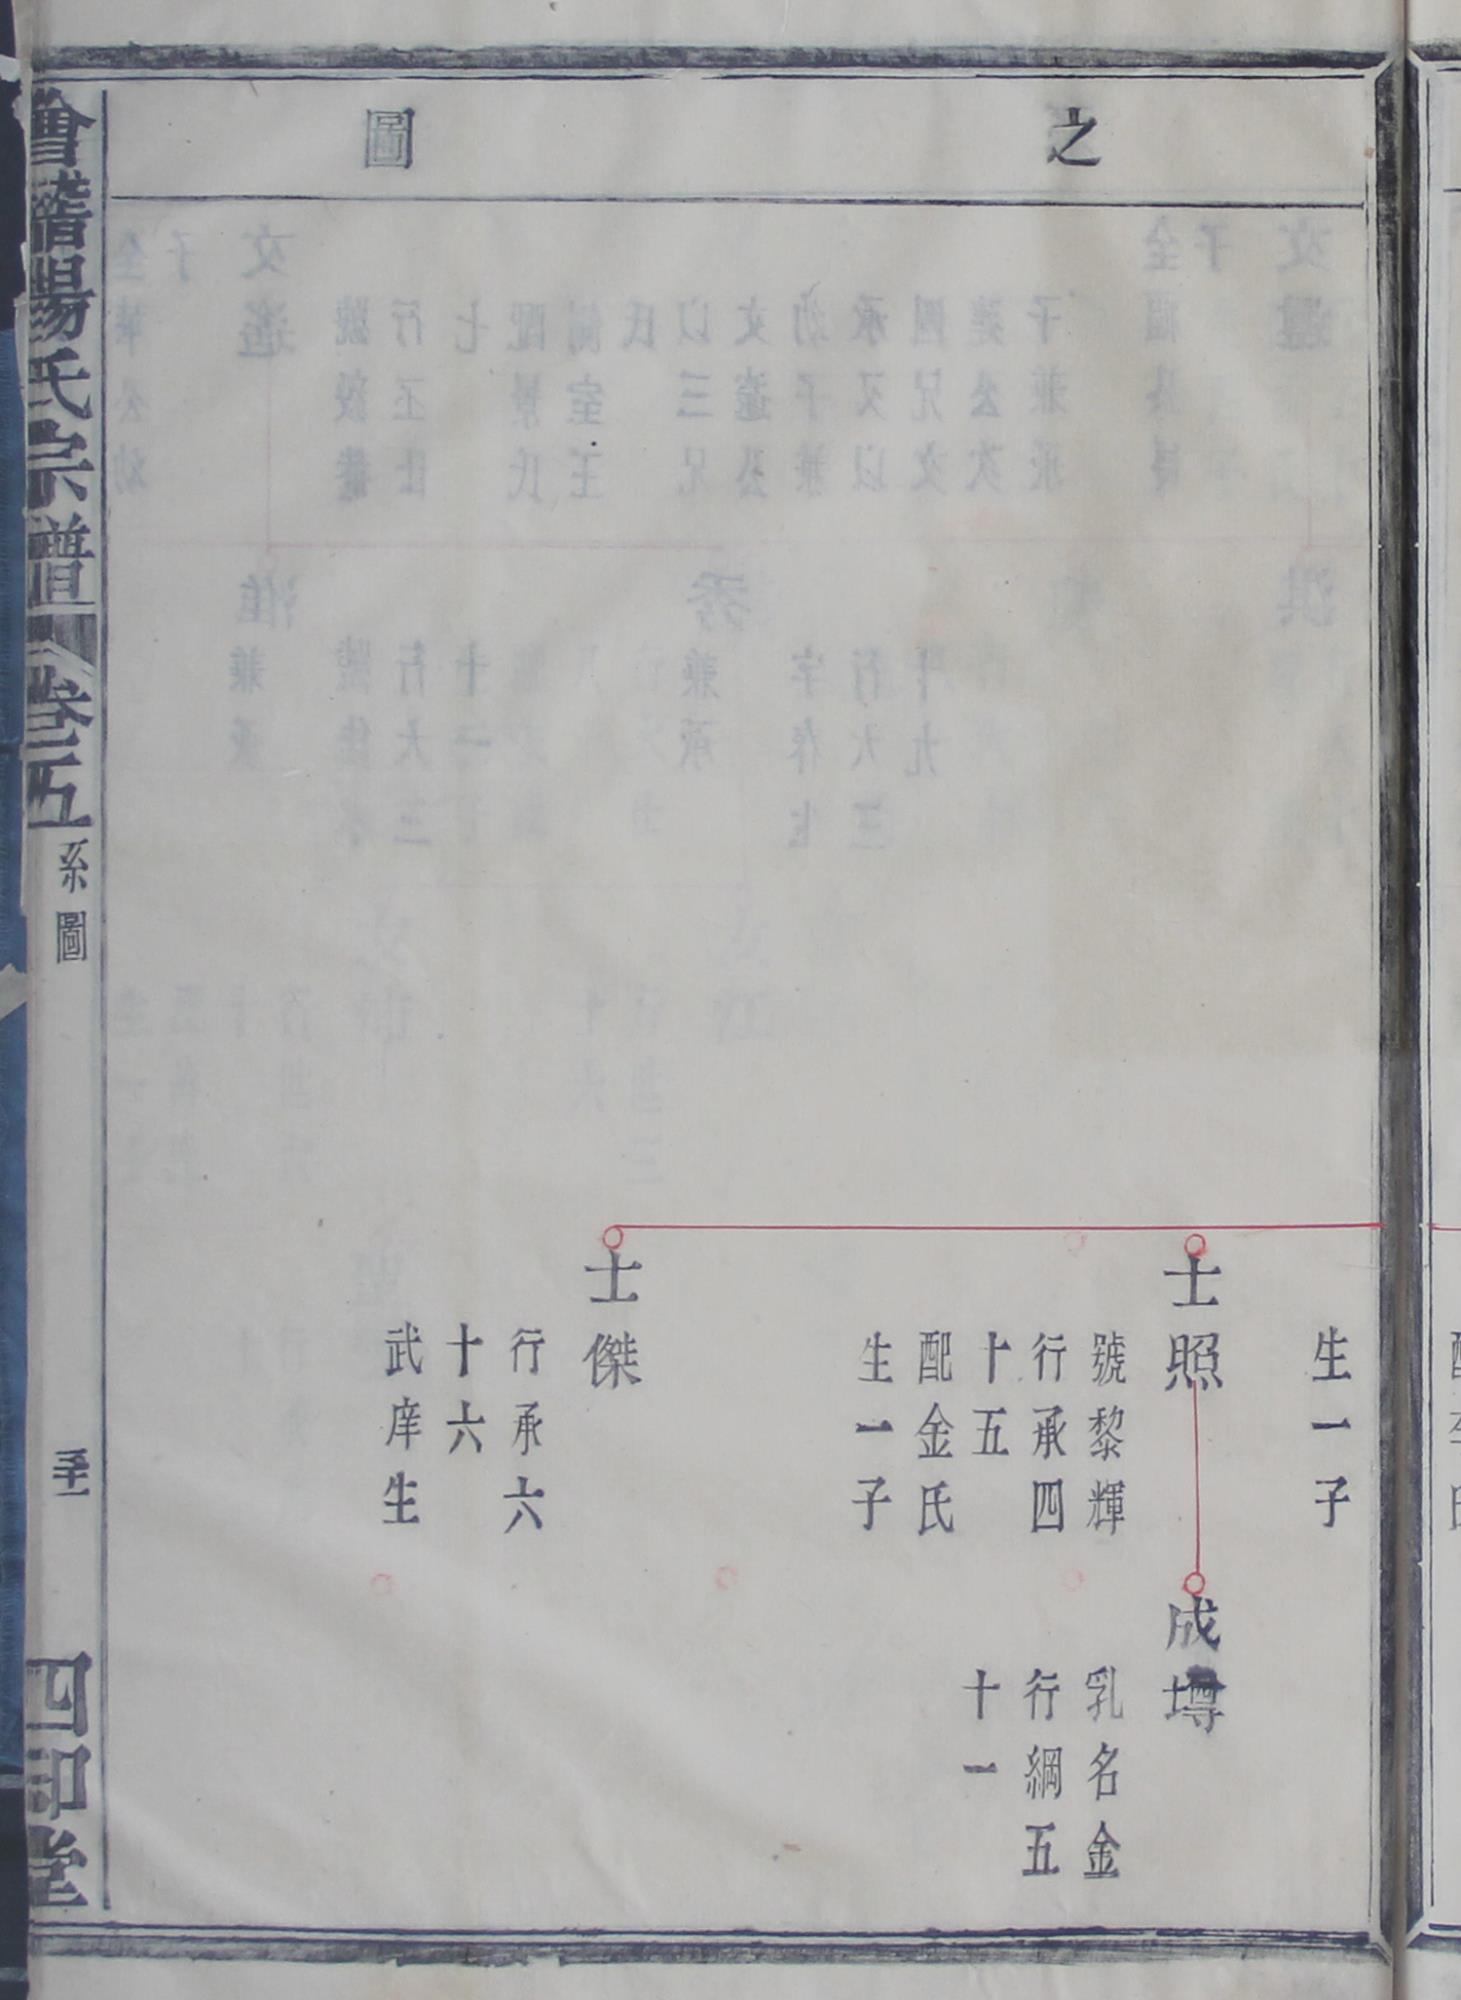 之
圖
生一子
士照
號黎輝
行承四
十五
配金氏
生一子
成墫
乳名金
行綱五
十一
士傑
行承六
十六
武庠生
會稽楊氏宗譜
卷五
系圖
四印堂